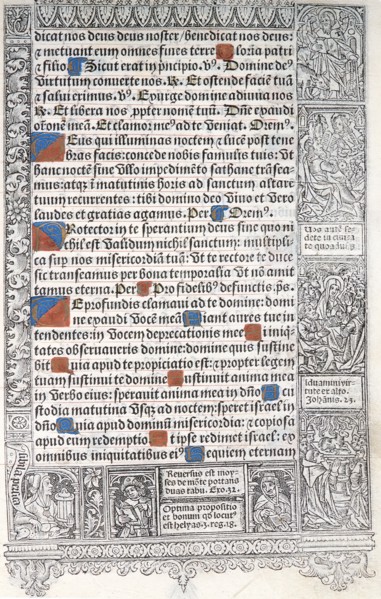 dicat nos deus deus noster / benedicat nos deus:
& metuant eum omnes fines terre. Gloria patri
& filio. Sicut erat in p̄ncipio. v̊. Domine de⁹
virtutum converte nos. R. Et ostende faciē tuā
& salui erimus. v̊. Exurge domine adiuva nos
R. Et libera nos ꝓpter nomē tuū. Dn̄e exaudi
orōnē meā. Et clamor me⁹ ad te veniat. Orem⁹.
Deus qui illuminas noctem & lucē post tene
bras facis: concede nobis famulis tuis: ut
hanc noctē sine ullo impedimēto sathane trāsea
mus: atqꝫ ī matutinis horis ad sanctum altare
tuū recurrentes: tibi domino deo vivo et vero
laudes et gratias agamus. Per. Orem⁹.
Protector in te sperantium deus sine quo ni
chil est validum nichil sanctum: multipli
ca suꝑ nos misericordiā tuā: ut te rectore te duce
sic transeamus per bona temporalia ut nō amit
tamus eterna. Per. Pro fidelib⁹ defunctis. p̄s.
De profundis clamavi ad te domine: domi
ne exaudi vocē meā. Fiant aures tue in
tendentes: in vocem deprecationis mee. Si iniq
tates observaveris domine: domine quis sustine
bit. Quia apud te propiciatio est: & propter legem
tuam sustinui te domine. Sustinuit anima mea
in verbo eius: speravit anima mea in dn̄o. A cu
stodia matutina usqꝫ ad noctem: speret israel in
dn̄o. Quia apud dominū misericordia: & copiosa
apud eum redemptio. Et ipse redimet israel: ex
omnibus iniquitatibus ei⁹. Requiem eternam
iduamini vir
tute ex alto.
Johānis. 24.
Reversus est moy
ses de mōte portans
duas tabu. Exo. 32.
Optima propositio
et bonum qd̄ locut⁹
est helyas. 3. reg. 18.